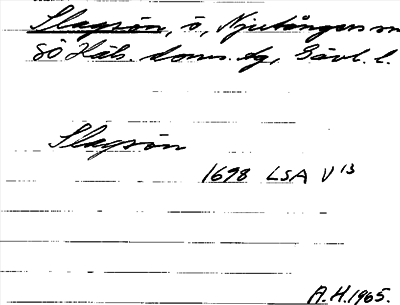 Slagsön, ö, Njutångers sn
SÖ Häls. doms.ag, Gävl. l.
Slagsön
1698 LSA V 13
A.H. 1965.